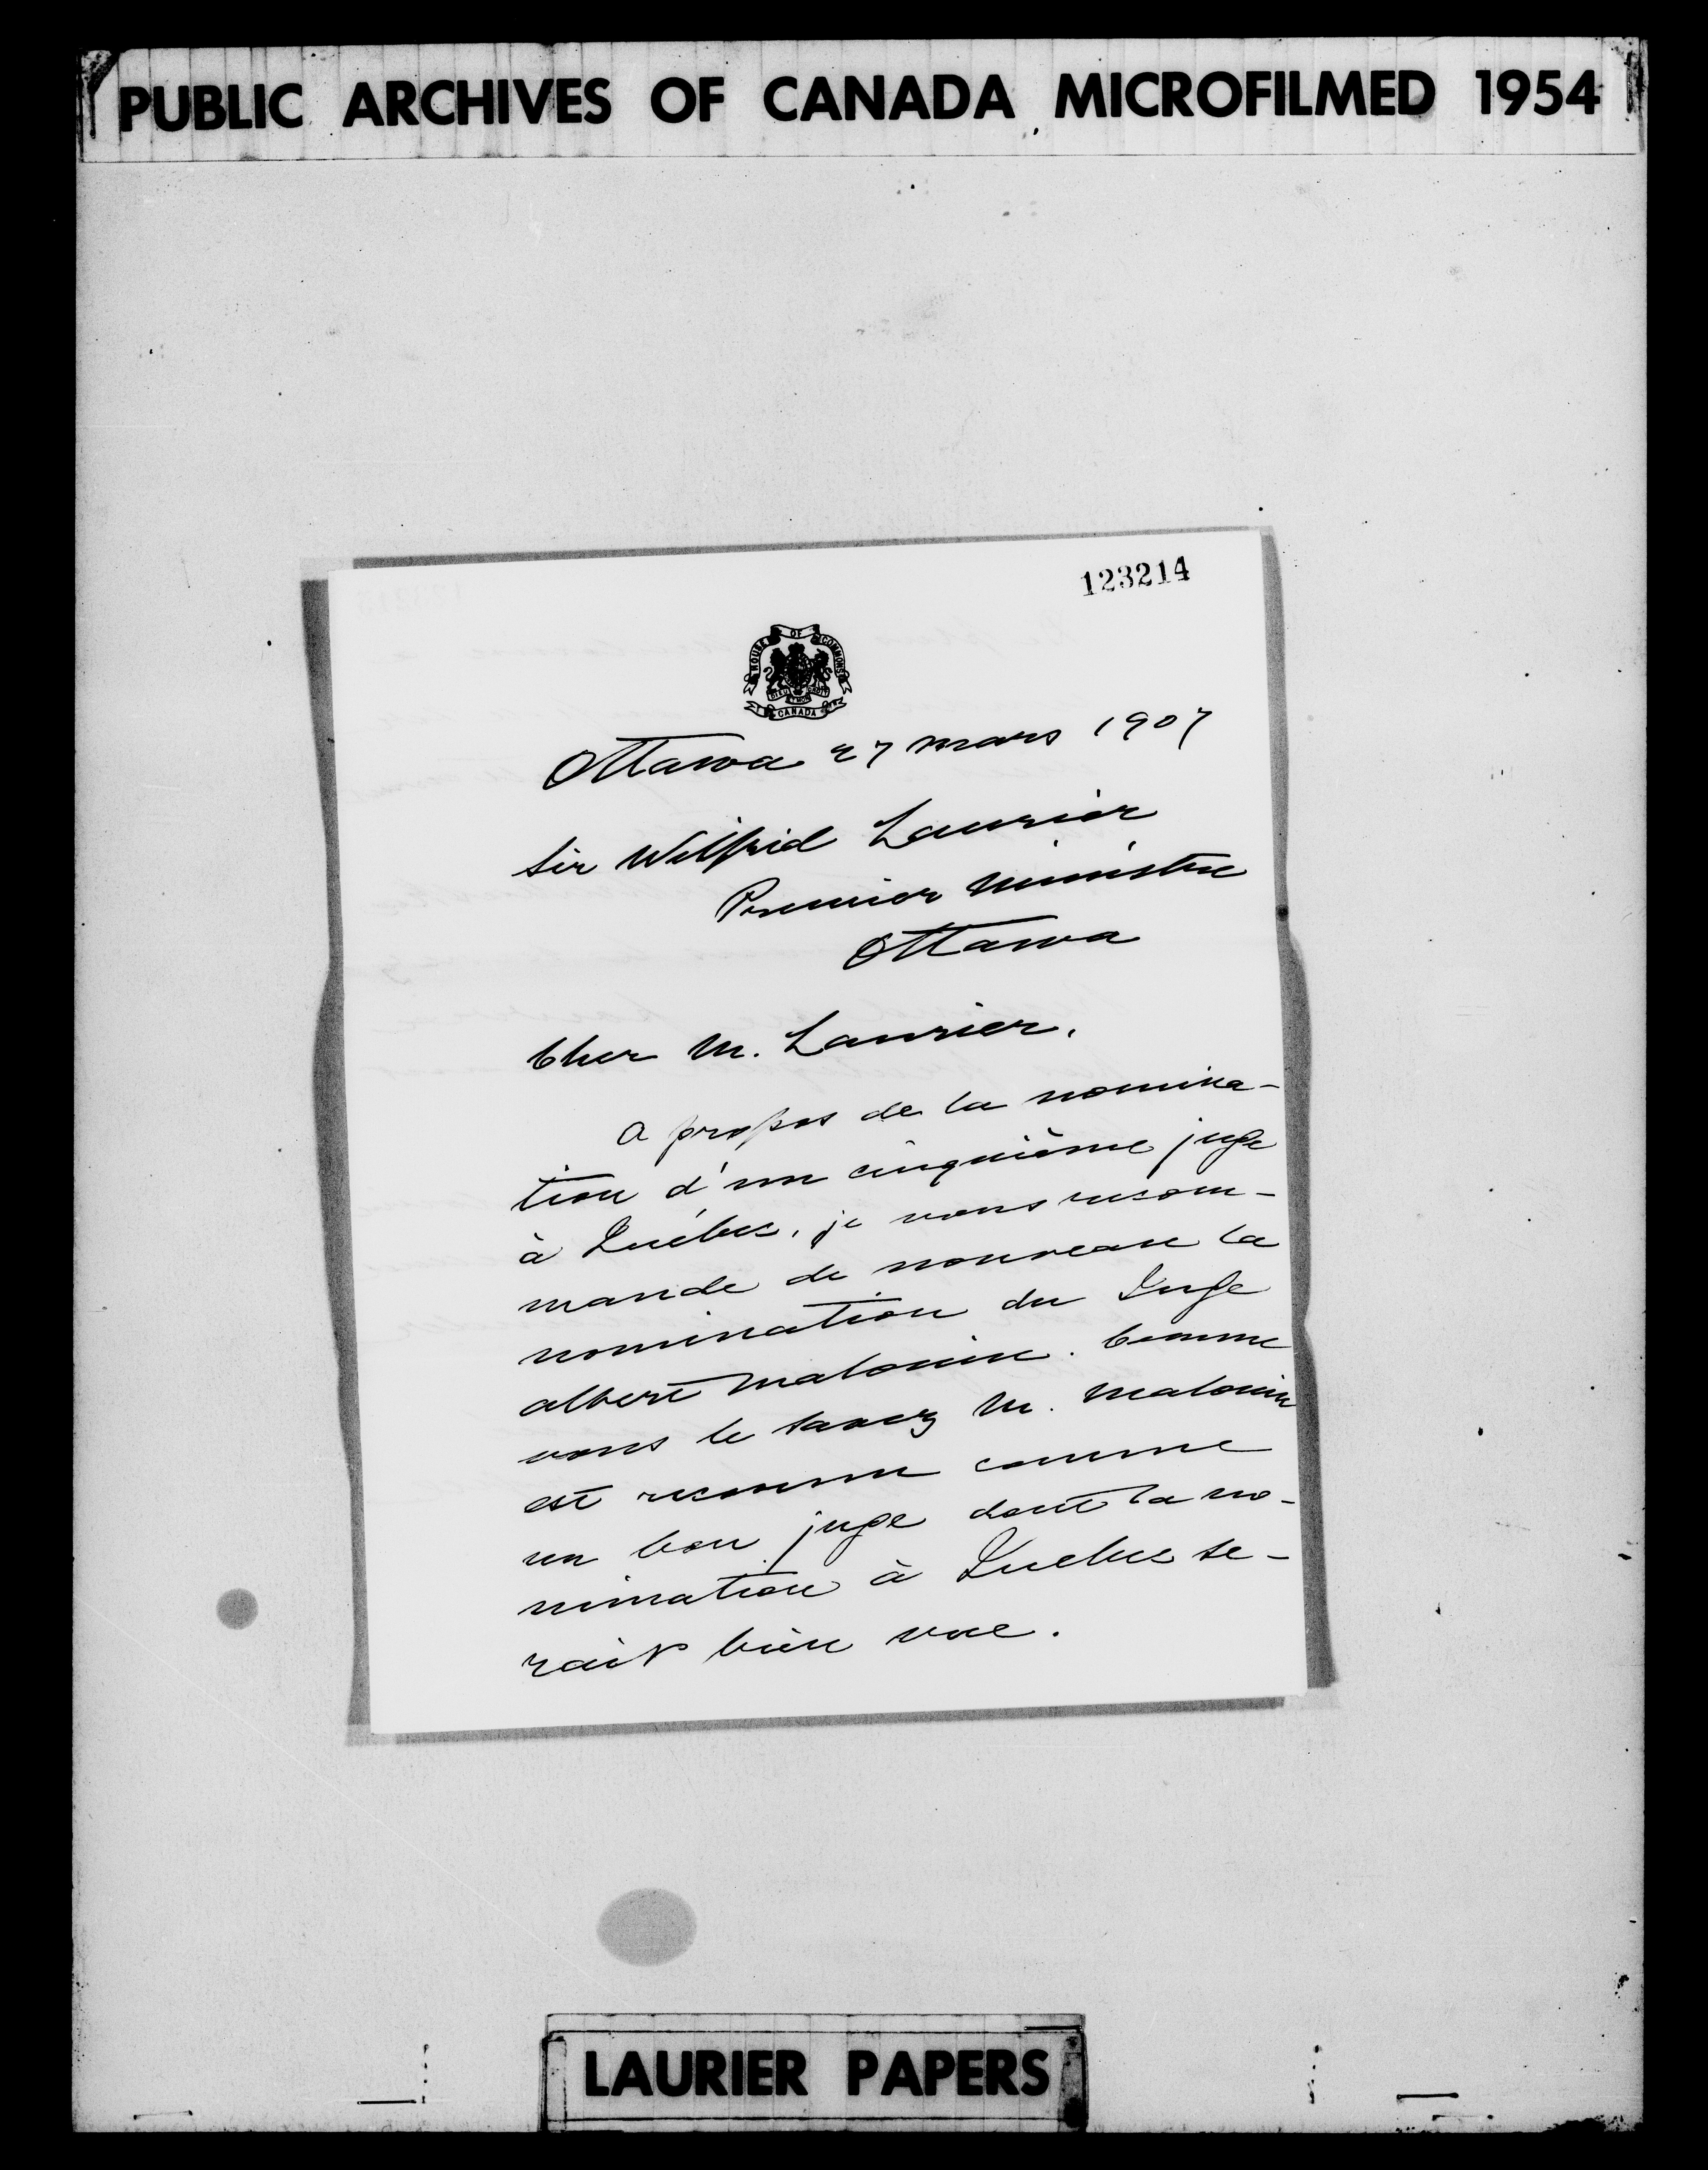 PUBLIC ARCHIVES OF CANADA MICROFILMED 1954
123214
HOUSE OF COMMONS
CANADA
Ottawa 27 mars 1907
Sir Wilfrid Laurier
Premier Ministre
Ottawa
Cher M. Laurier,
A propos de la nomina-
tion d'un cinquième juge
à Québec, je vous recom-
mande de nouveau la
nomination du Juge
Albert Malouin. Comme
vous le savez M. Malouin
est reconnu comme
un bon juge dont la no-
mination à Quebec se-
rait bien vue.
LAURIER PAPERS